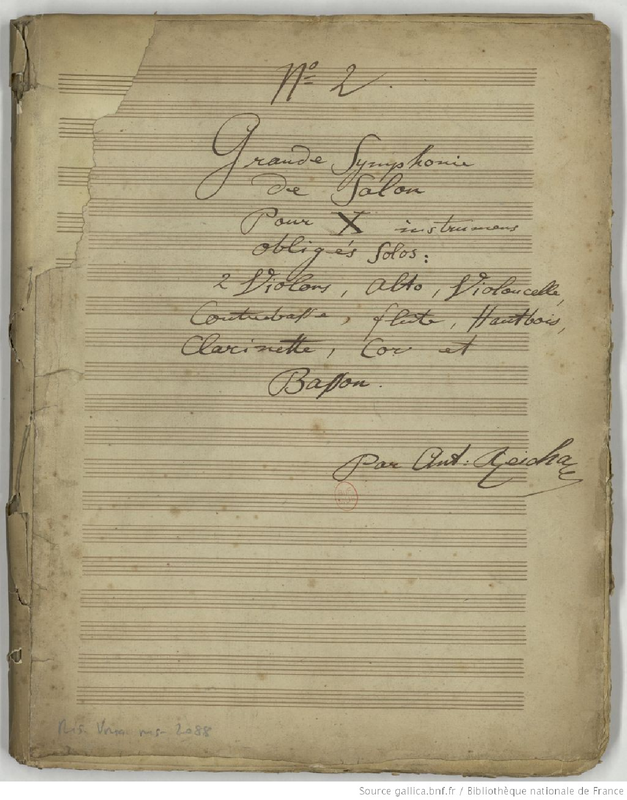 Nº 2
Grande Symphonie
de Salon
Pour X instrumens
obligés Solos:
2 Violons, Alto, Violoncelle,
Contrebasse, flute, Hautbois,
Clarinette, Cor et
Basson.
Par Ant: Reicha
ms. 2088
Source gallica.bnf.fr / Bibliothèque nationale de France